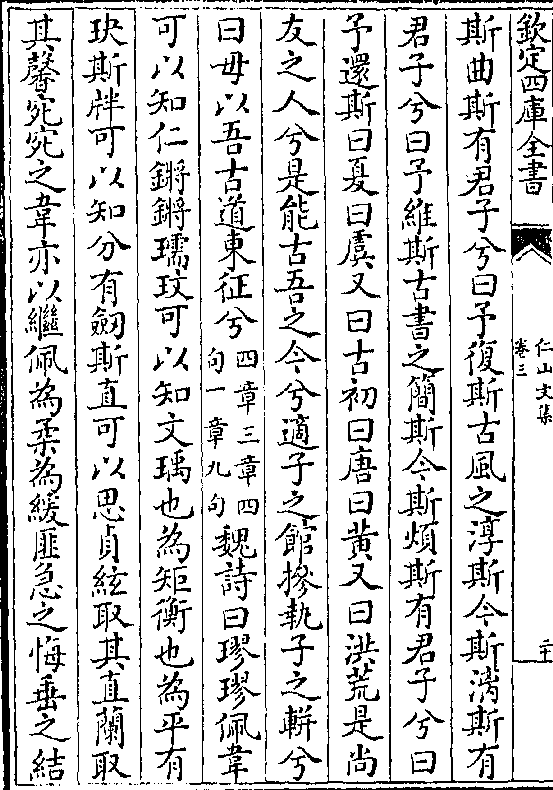 欽定四庫全書
仁山文集
卷三
二十
斯曲斯有君子兮曰予復斯古風之淳斯今斯漓斯有
君子兮曰予維斯古書之簡斯今斯煩斯有君子兮曰
予還斯曰夏曰虞又曰古初曰唐曰黄又曰洪荒是尚
友之人兮是能古吾之今兮適子之館摻執子之輧兮
曰毋以吾古道東征兮四章三章四
句一章九句魏詩曰璆璆佩韋
可以知仁鏘鏘瓀玟可以知文瑀也為矩衡也為平有
玦斯牉可以知分有劒斯直可以思貞絃取其直蘭取
其馨宛宛之韋亦以繼佩為柔為緩匪急之悔垂之結